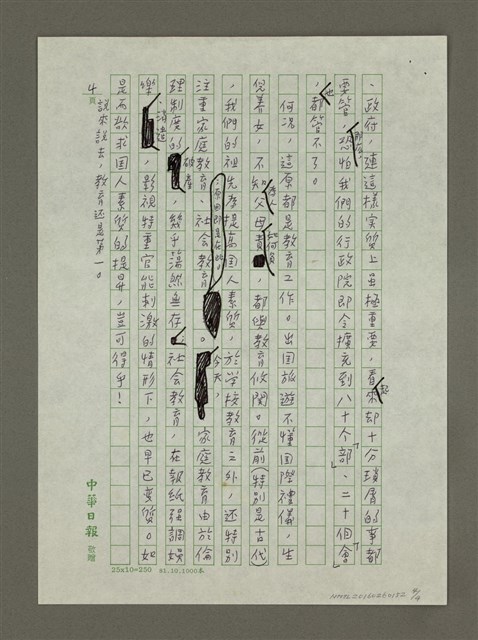 、政府，連這樣實質上雖極重要，看起來却十分瑣屑的事都
要管，那麼，恐怕我們的行政院即令擴充到八十个「部」、二十個「會」
，也都管不了。
何況，這原都是教育工作。出国旅遊不懂国際禮儀，生
兒養女，不知為人父母如何負責，都與教育攸関。從前（特別是古代）
，我們的祖先為提高国人素質，於学校教育之外，還特別
注重家庭教育、社會教育，原因即是在此。今天，家庭教育由於倫
理制度的破產，幾乎蕩然無存，社會教育，在報紙强調娛
樂、消遣，影視特重官能刺激的情形下，也早已变質。如
是而欲求国人素質的提昇，豈可得乎！
說來說去，教育还是第一。
4頁
中華日報 敬贈
25x10=250 81.10.1000本